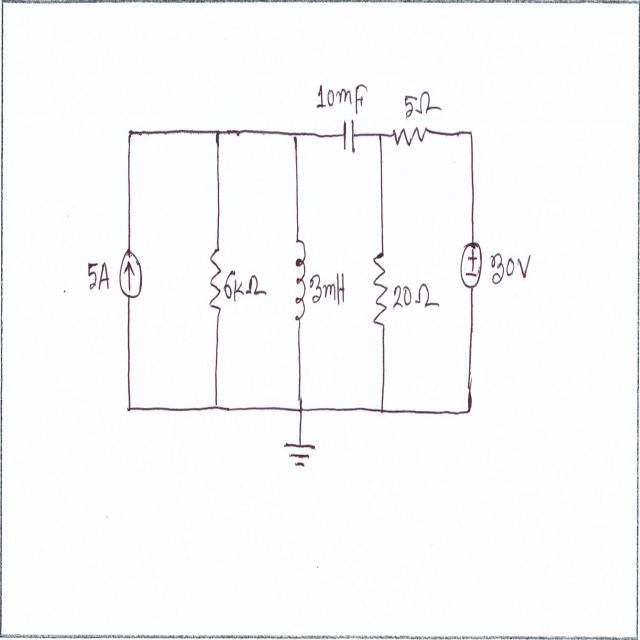 10mF 5Ω
5A 6kΩ 3mH 20Ω 30V